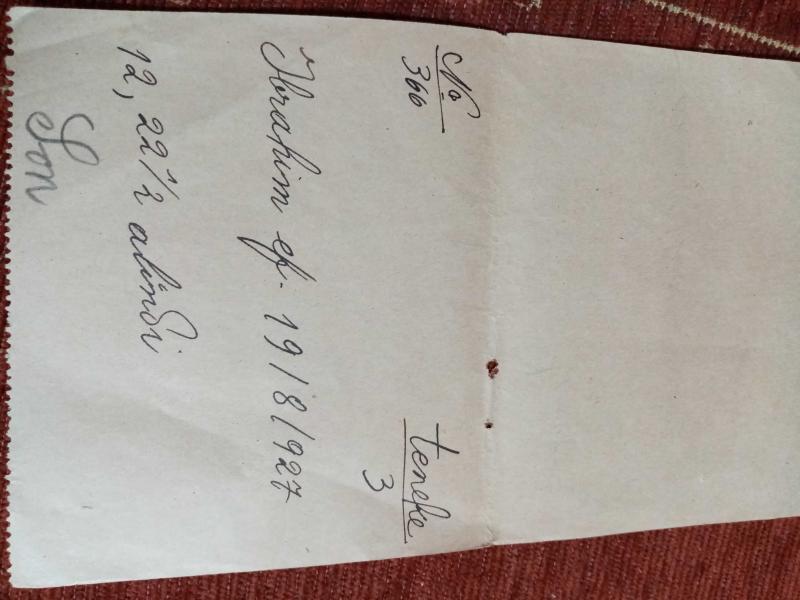 No teneke
366 3
Ibrahim ef. 19/8/927
12, 22 1/2 alındı
Son